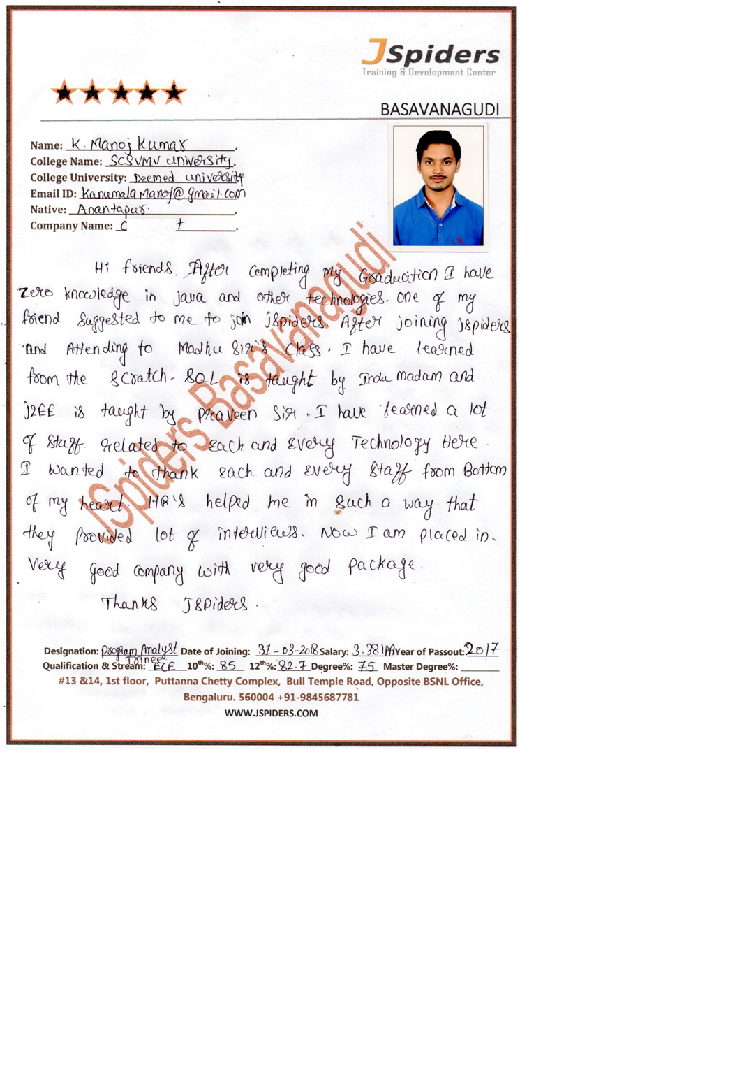 JSpiders
Training & Development Center
BASAVANAGUDI
Name: K. Manoj Kumar
College Name: SCSVMV University.
College University: Deemed University
Email ID: Kanumala Manoj@gmail.com
Native: Anantapur.
Company Name: C t
Hi friends. After completing my Graduation I have
Zero knowledge in java and other technologies. one of my
friend Suggested to me to join jspiders. After joining jspiders
and Attending to Madhu Sir's Class. I have learned
from the Scratch. SQL is taught by Indu madam and
J2EE is taught by Praveen Sir. I have learned a lot
of Stuff related to each and every Technology Here.
I wanted to thank each and every staff from Bottom
of my heart. HR's helped me in such a way that
they Provided lot of interviews. Now I am placed in.
Very good company with very good package.
Thanks JSpiders.
JSpiders Basavanagudi
Designation: Program Analyst Trainee Date of Joining: 31-03-2018 Salary: 3.38 Year of Passout: 2017
Qualification & Stream: ECE 10th%: 85 12th%: 82.7 Degree%: 75 Master Degree%:
#13 &14, 1st floor, Puttanna Chetty Complex, Bull Temple Road, Opposite BSNL Office,
Bengaluru. 560004 +91-9845687781
WWW.JSPIDERS.COM